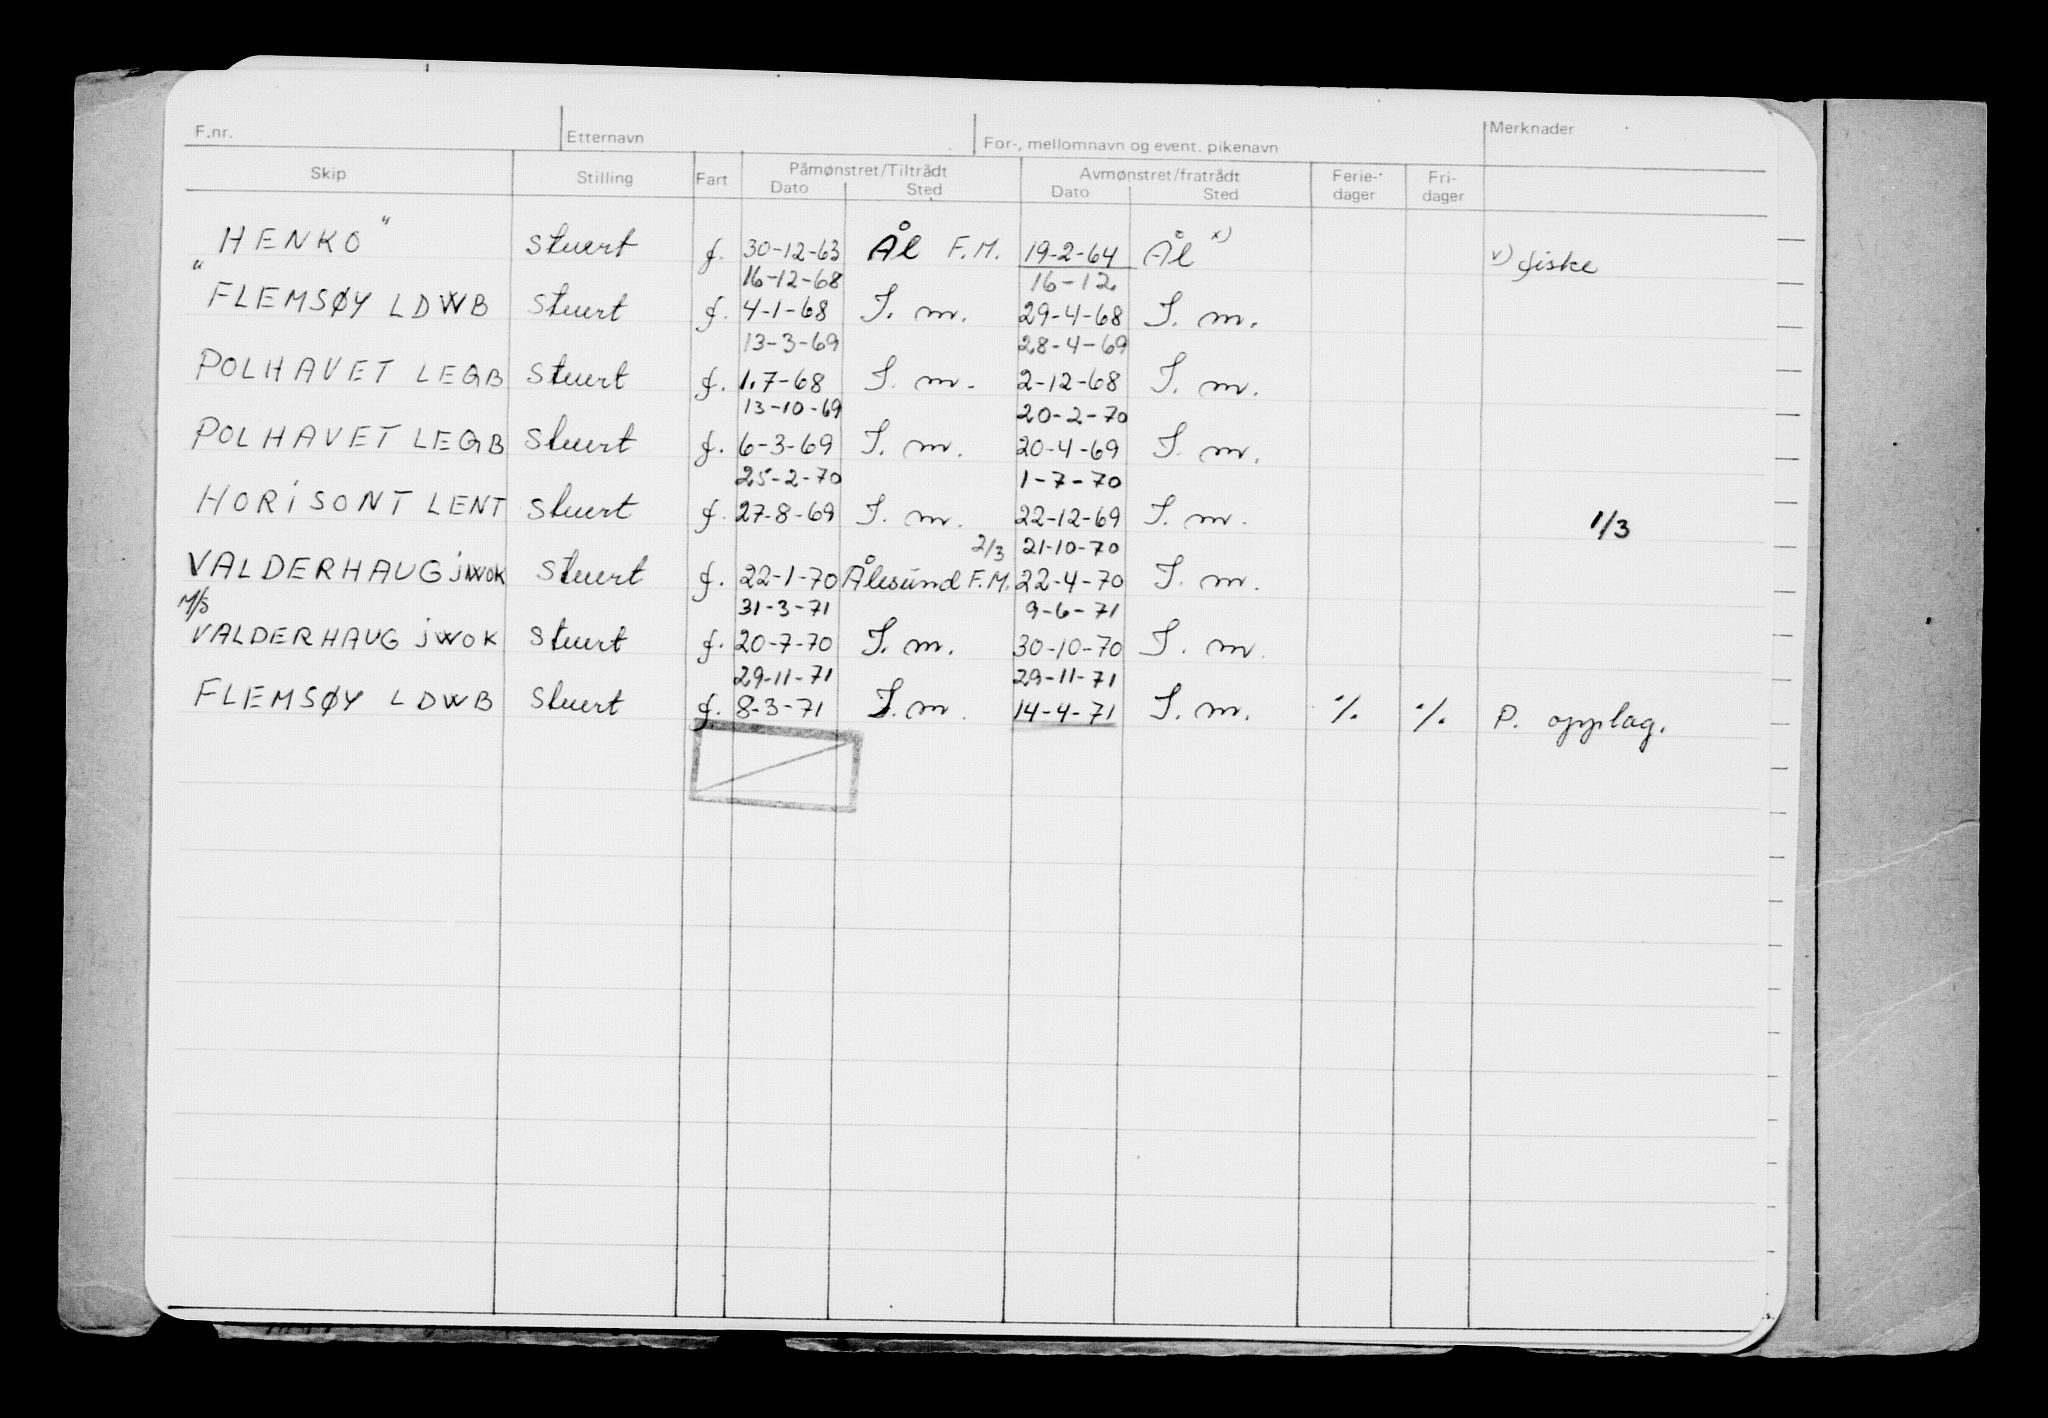 F.nr. Etternavn For-, mellomnavn og event. pikenavn Merknader
Skip Stilling Fart Påmønstret/Tiltrådt Avmønstret/fratrådt Ferie- Fri-
Dato Sted Dato Sted dager dager
HENKO" Stuert f. 30-12-63 Ål F.M. 19-2-64 Ål x) v) fiske
16-12-68 16-12
"FLEMSØY LDWB Stuert f. 4-1-68 S. m. 29-4-68 S. m.
13-3-69 28-4-69
POLHAVET LEGB Stuert f. 1.7-68 S. m. 2-12-68 S. m.
13-10-69 20-2-70
POLHAVET LEGB Stuert f. 6-3-69 S. m. 20-4-69 S. m.
25-2-70 1-7-70
HORiSONT LENT Stuert f. 27-8-69 S. m. 22-12-69 S. m. 1/3
2/3 21-10-70
VALDERHAUG jWOK Stuert f. 22-1-70 Ålesund F.M. 22-4-70 S. m.
M/S 31-3-71 9-6-71
VALDERHAUG jWOK Stuert f. 20-7-70 S. m. 30-10-70 S. m.
29-11-71 29-11-71
FLEMSØY LDWB Stuert f. 8-3-71 S. m. 14-4-71 S. m. % % P. opplag.